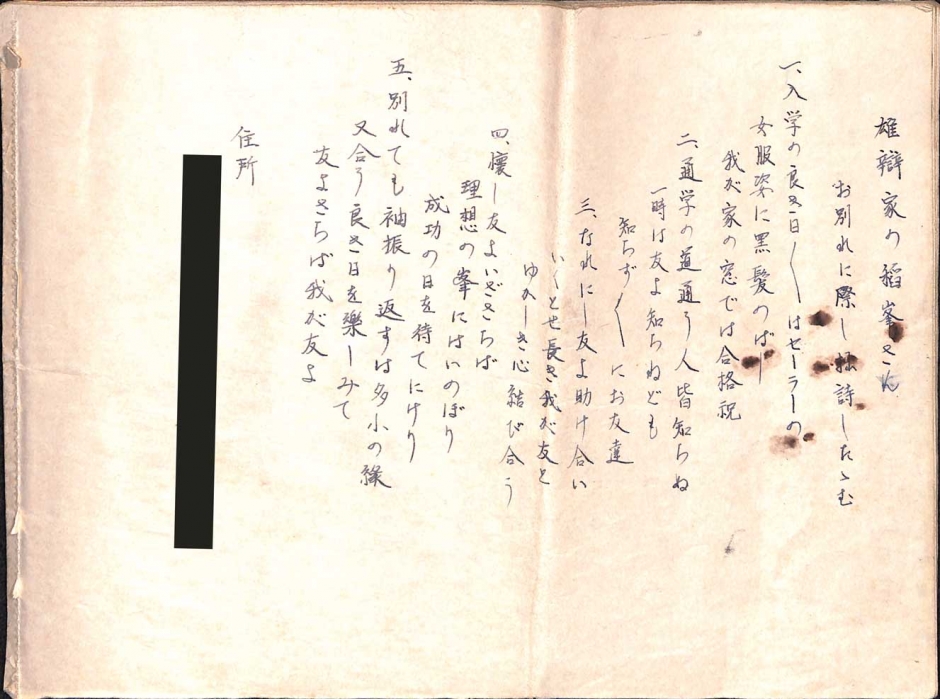 雄辯家の稻峯さん
お別れに際し拙詩したゝむ
一、入学の良き日〱はセーラーの
女服姿に黒髪のばし
我が家の窓では合格祝
二、通学の道通う人皆知らぬ
一時は友よ知らねども
知らず〱にお友達
三、なれにし友よ助け合い
いくとせ長き我が友と
ゆかしき心結び合う
四、懐し友よいざさらば
理想の峯にはいのぼり
成功の日を待てにけり
五、別れても袖振り返すは多小の縁
又合う良き日を樂しみて
友よさらば我が友よ
住所